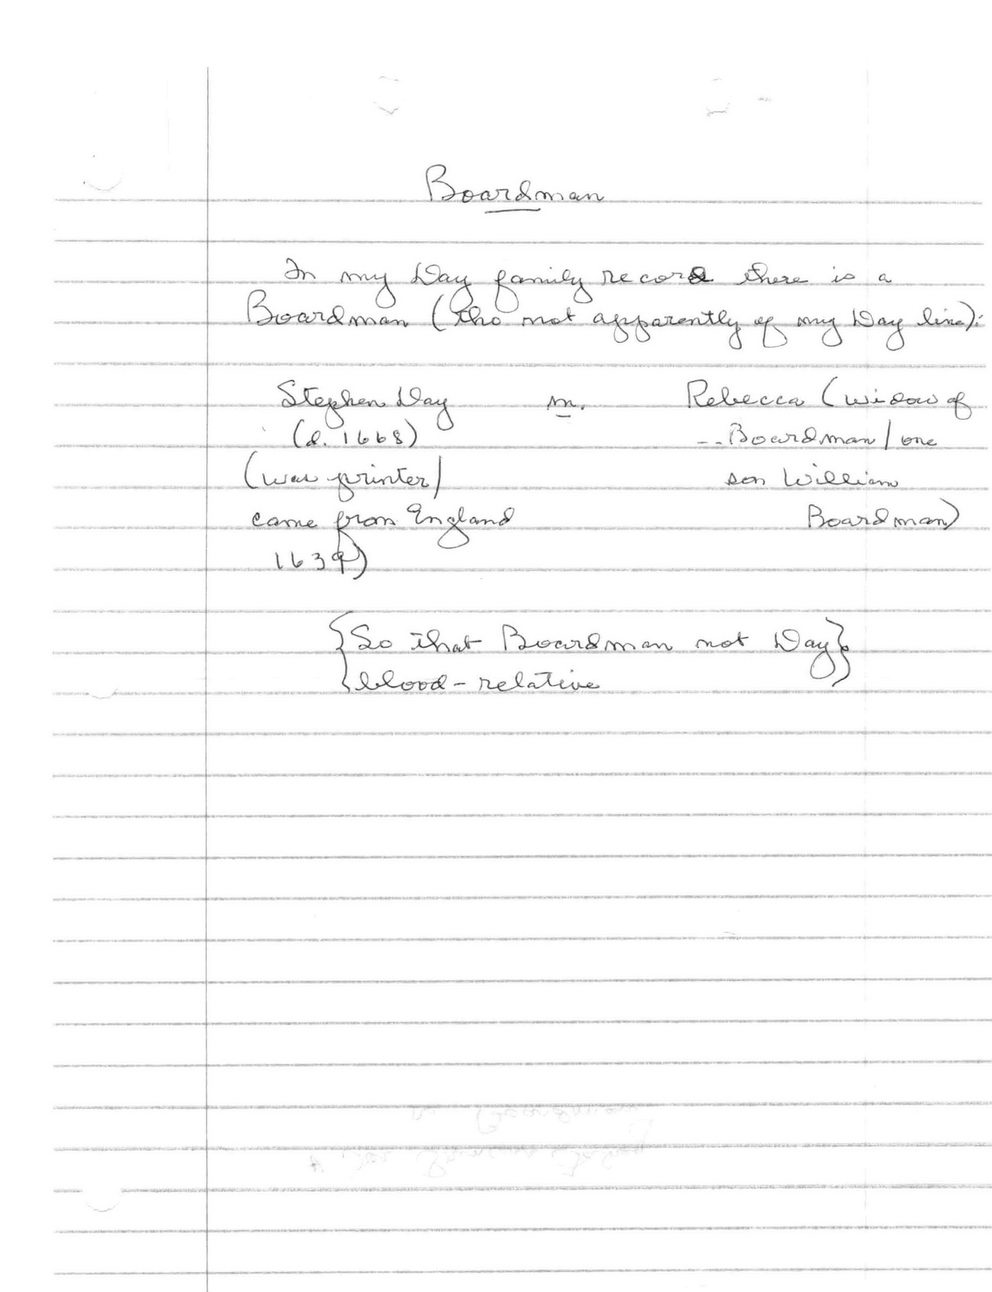 Boardman
In my Day family record there is a
Boardman (tho not apparently of my Day line):
Stephen Day m. Rebecca (widow of
(d. 1668) -- Boardman / one
(was printer / son William
came from England Boardman)
1639)
{So that Boardman not Day}
{blood-relative